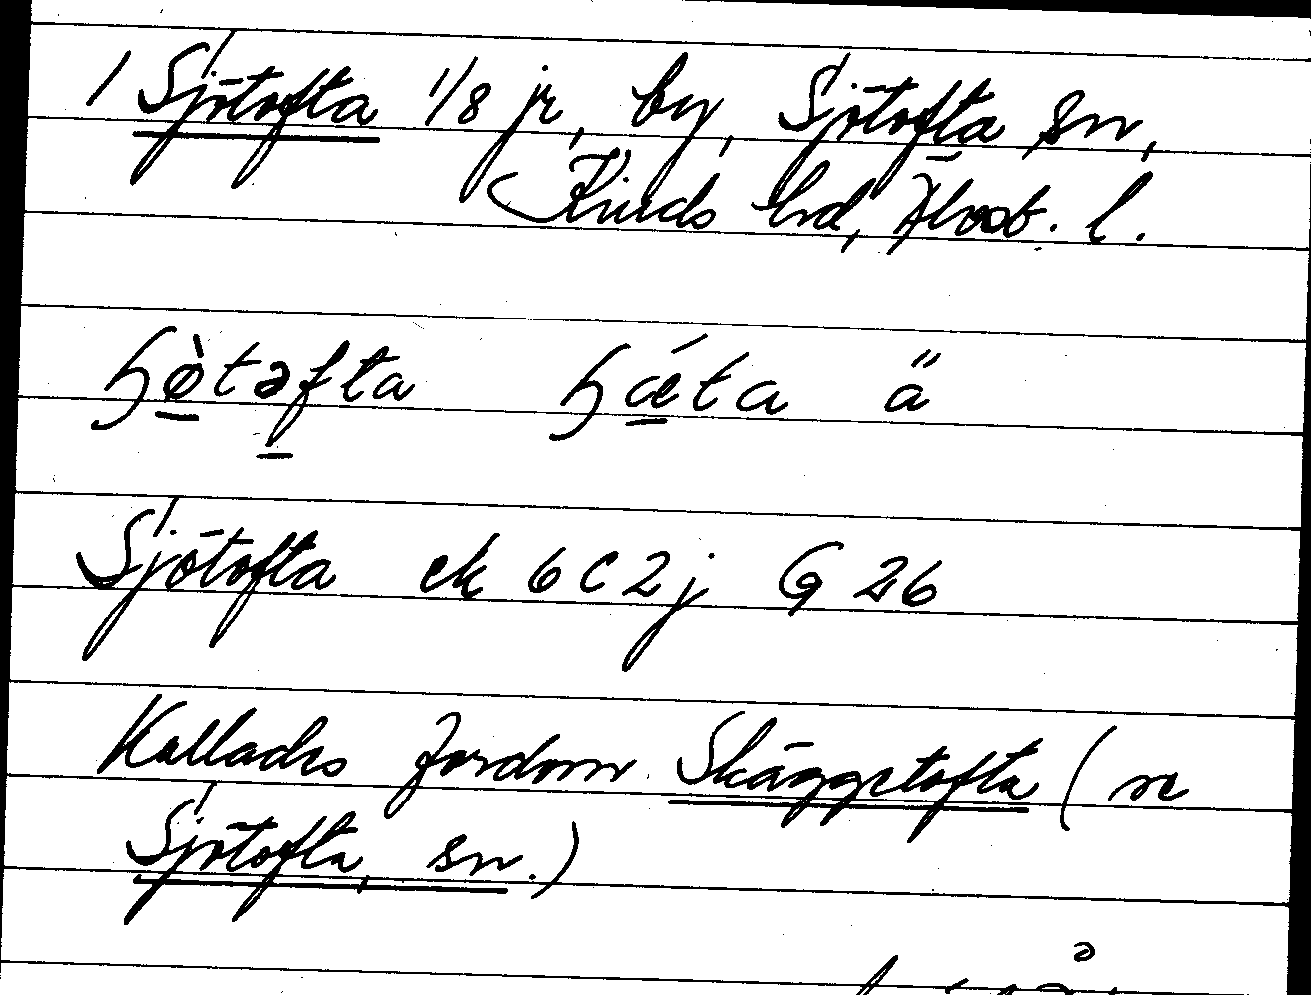 1 Sjötofta 1/8 jr, by, Sjötofta sn,
Kinds hd, Älvsb. l.
ɧø̀təfta ɧǽta ä
Sjötofta ek 6 C 2 j G 26
Kallades fordom Skäggetofta (se
Sjötofta, sn.)